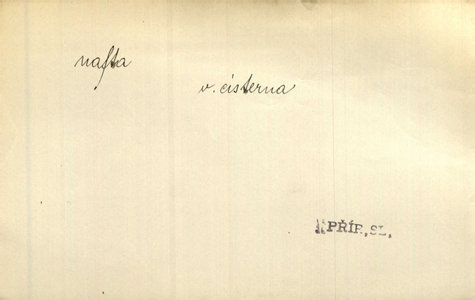 nafta
v. cisterna
PŘÍR. SL.